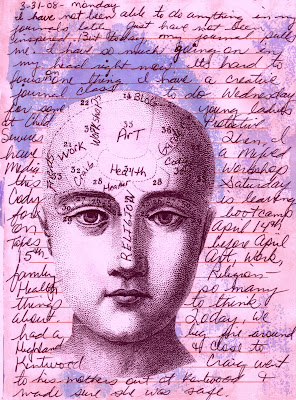 3-31-08 - monday
I have not been able to do anything in my
journals. I just have not been
inspired. But today my journal calls
me. I have so much going on in
my head right now. It's hard to
focus. One thing I have a creative
journal class to do Wednesday
for some young ladies
at Child Protective
Services. Then, I
have a Mixed
Media Workshop
this Saturday.
Cody is leaving
for bootcamp
on April 14th.
Taxes before April
15th. Art, Work,
family, Religion
Health - so many
things to think
about. Today we
had a big fire around
Highland & close to
Kentwood. Craig went
to his mothers out at Kentwood &
made sure she was safe.
Work
WORKSHOPS
Blog
Art
Health
Header
RELIGION